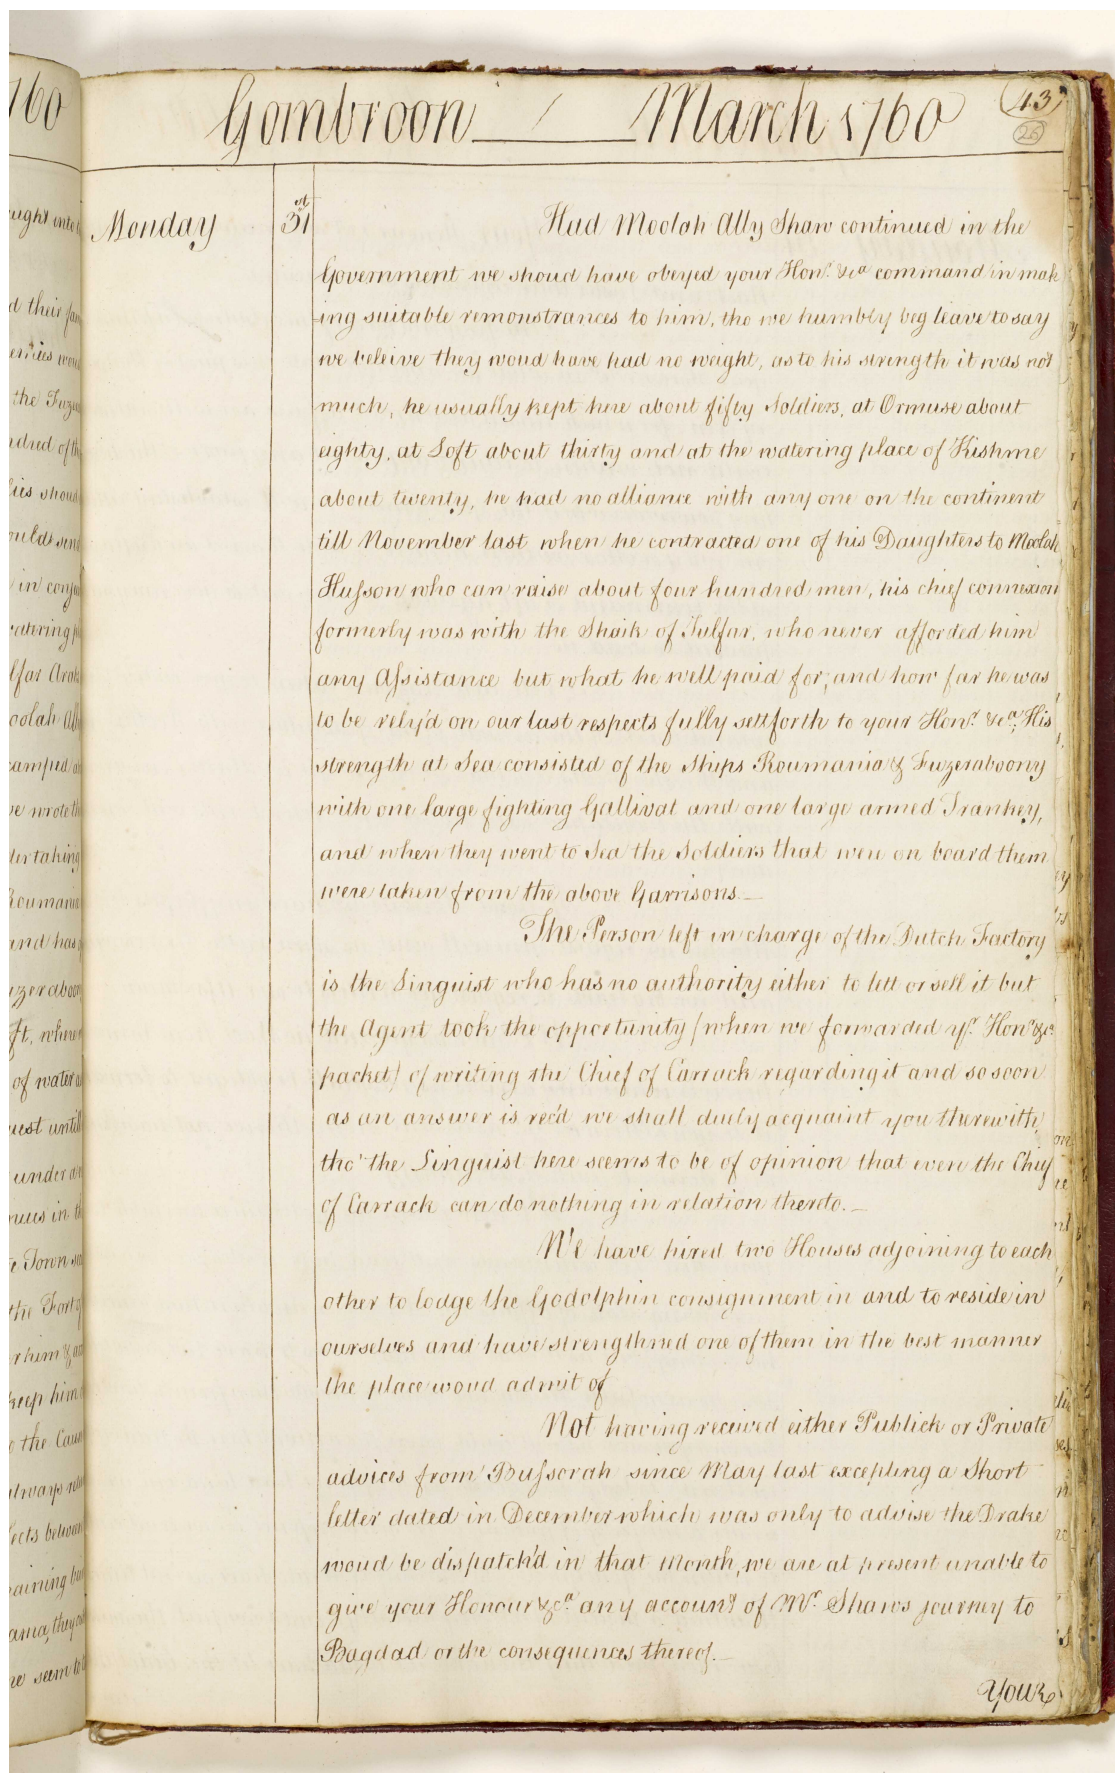 Gombroon / March 1760
43
26
Monday 31st
Had Moolah Ally Shaw continued in the
Government we shoud have obeyed your Honr. &ca command in mak
-ing suitable remonstrances to him, tho we humbly beg leave to say
we beleive they woud have had no weight, as to his strength it was not
much, he usually kept here about fifty Soldiers, at Ormuse about
eighty, at Loft about thirty and at the watering place of Kishme
about twenty, he had no alliance with any one on the continent
till November last when he contracted one of his Daughters to Moolah
Husson who can raise about four hundred men, his chief connexion
formerly was with the Shaik of Julfar, who never afforded him
any Assistance but what he well paid for, and how far he was
to be rely'd on our last respects fully sett forth to your Honr. &ca; His
strength at Sea consisted of the Ships Roumania & Fuzeraboony
with one large fighting Gallivat and one large armed Trankey,
and when they went to Sea the Soldiers that were on board them
were taken from the above Garrisons.—
The Person left in charge of the Dutch Factory
is the Linguist who has no authority either to lett or sell it but
the Agent took the opportunity (when we forwarded yr. Honr. &ca.
packet) of writing the Chief of Carrack regarding it and so soon
as an answer is rec'd we shall duely acquaint you therewith,
tho' the Linguist here seems to be of opinion that even the Chief
of Carrack can do nothing in relation thereto.—
We have hired two Houses adjoining to each
other to lodge the Godolphin consignment in and to reside in
ourselves and have strengthned one of them in the best manner
the place woud admit of
Not having received either Publick or Private
advices from Bussorah since May last excepting a Short
letter dated in December which was only to advise the Drake
woud be dispatch'd in that Month, we are at present unable to
give your Honour &ca. any account of Mr. Shaws journey to
Bagdad or the consequences thereof.—
Your